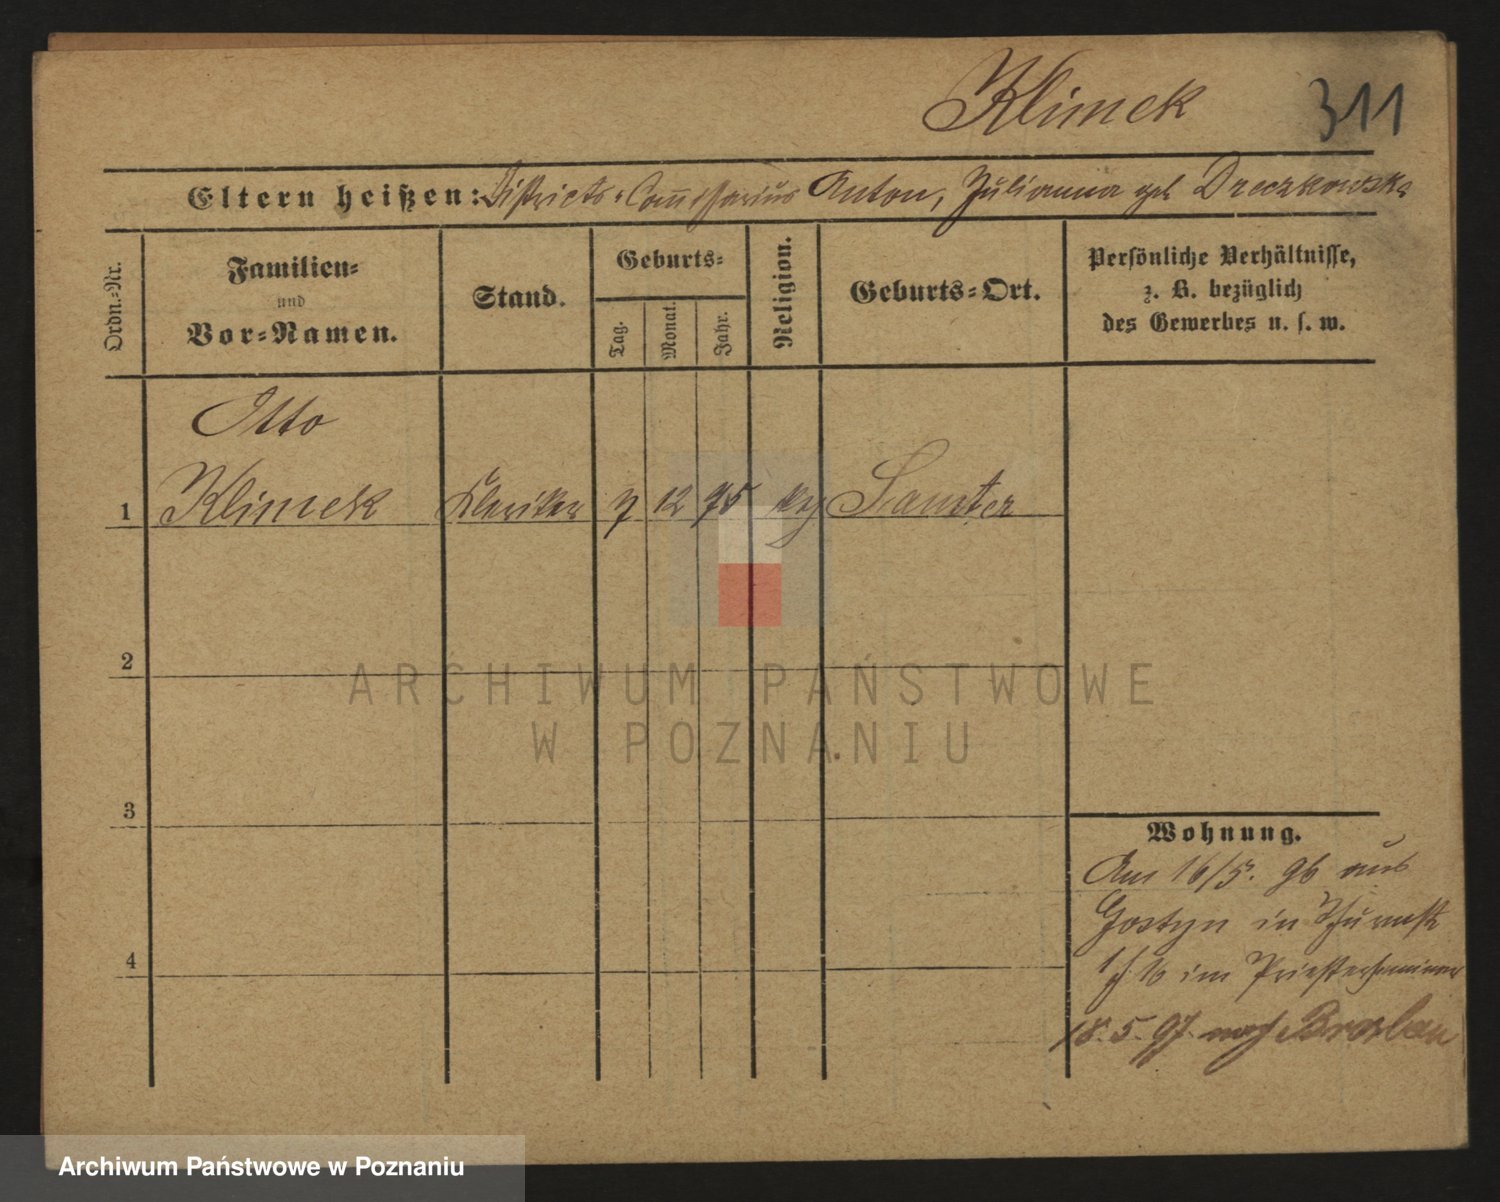 Klimek 311
Eltern heißen: Districts-Com̅issarius Anton, Julianna geb Dreczkowska
Ordn.=Nr.
Familien=
und
Vor=Namen.
Stand.
Geburts=
Tag.
Monat.
Jahr.
Religion.
Geburts=Ort.
Persönliche Verhältnisse,
z. B. bezüglich
des Gewerbes u. s. w.
Otto
1 Klimek Kleriker 7 12 75 Samter
2
3
4
Wohnung.
Am 16/5. 96 aus
Gostyn in
im Priesterseminar
18. 5. 97. nach Breslau
ARCHIWUM PAŃSTWOWE
W POZNANIU
Archiwum Państwowe w Poznaniu